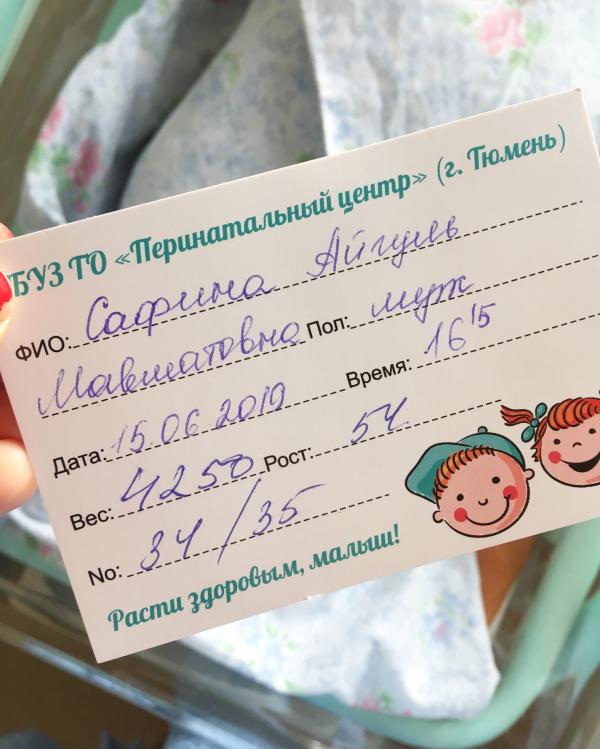 БУЗ ТО «Перинатальный центр» (г. Тюмень)
ФИО: Сафина Айгуль
Мавлатовна Пол: муж
Дата: 15.06 2019 Время: 16 15
Вес: 4250 Рост: 54
No: 34/35
Расти здоровым, малыш!